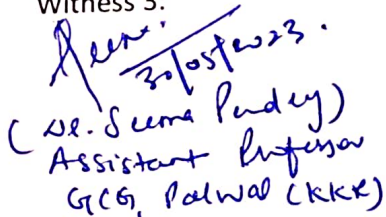 Witness 3.
30/05/2023.
(Dr. Seema Pandey)
Assistant Professor
GCG, Palwal (KKR)